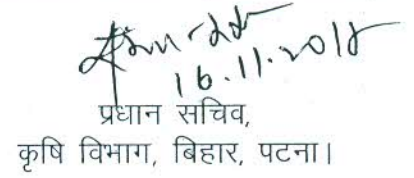 16.11.2018
प्रधान सचिव,
कृषि विभाग, बिहार, पटना।